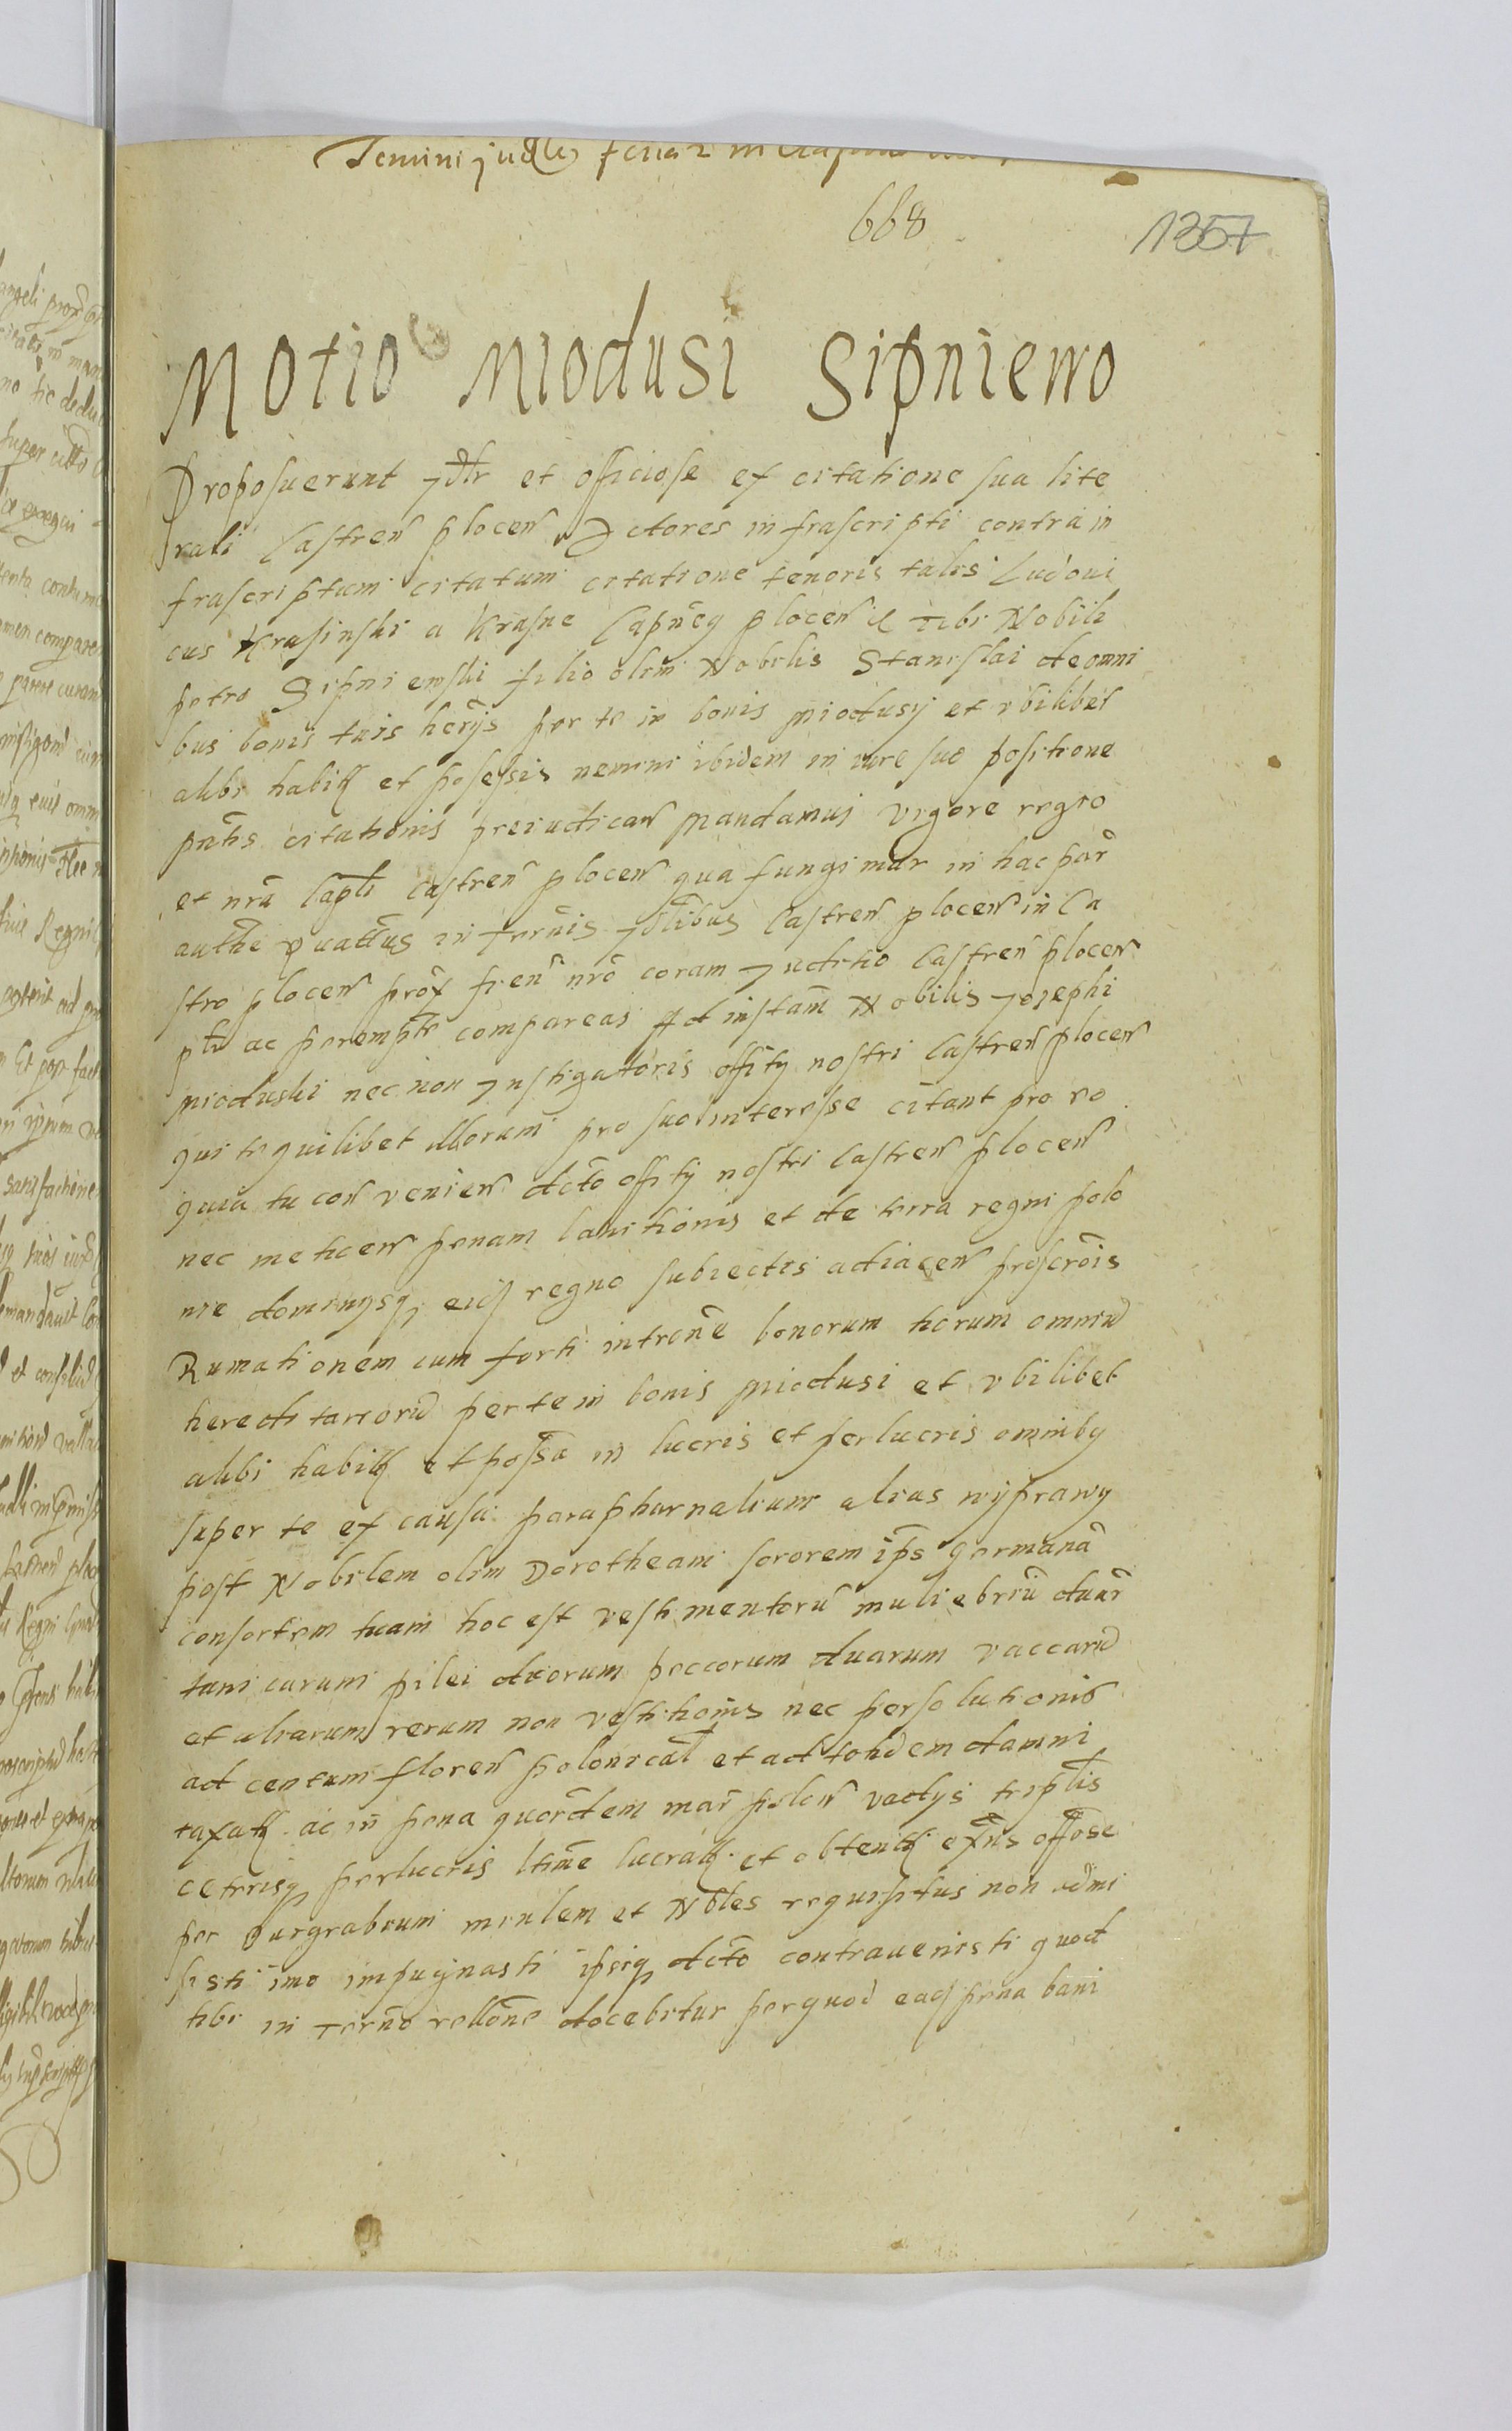 Termini judles feria 2 in
668
1357
Motio Miodusi Sipniewo
Proposuerunt Jdlr et officiose ex citatione sua lite
rali Castren plocen Actores infrascripti contra in
frascriptum citatum citatione tenoris talis Ludoui
cus Krasinski a Krasne Capneg plocen Tibi Nobili
petro Sipniewski filio olim Nobilis Stanislai de omni
bus bonis tuis herijs per te in bonis Miodusy et vbilibet
alibi habitis et possessis nemini ibidem in iure suo positione
pntis citationis preiudican Mandamus vigore regio
et nra Capli castren plocen qua fungimur in hac par
authe quattus in ternis Jdlibus Castren plocen in Ca
stro plocen prox fien nro coram Juditio Castren plocen
plr ac perempte compareas Ad instam Nobilis Josephi
Mioduski nec non Jnstigatoris offity nostri Castren plocen
qui te quilibet illorum pro suo interesse citant pro eo
quia tu con venien dcto offity nostri castren plocen
nec metuen penam banitionis et de terra regni polo
nie dominysq eid regno subiectis adiacen proscrois
Rumationem cum forti introne bonorum horum omniu
hereditarioru per te in bonis Miodusi et vbilibet
alibi habitis et possa in lucris et perlucris omnibus
super te ex causa parapharnalium alias wyprawy
post Nobilem olim Dorotheam sororem ips germana
consortem tuam hoc est vestimentoru muliebriu duar
tunicarum pilei duorum peccorum duarum vaccaru
et aliarum rerum non restitionis nec persolutionis
ad centum floren polonical et ad totidem damni
taxatis ac in pena quordem mar polon vadys triplis
cetrisq perlucris ltime lucratis et obtentis exns offose
per Burgrabium minlem et Nbles requisitus non admi
sisti imo impugnasti ipsiq dcto contrauenisti quod
tibi in terno rellone docebitur per quod ead pena bani